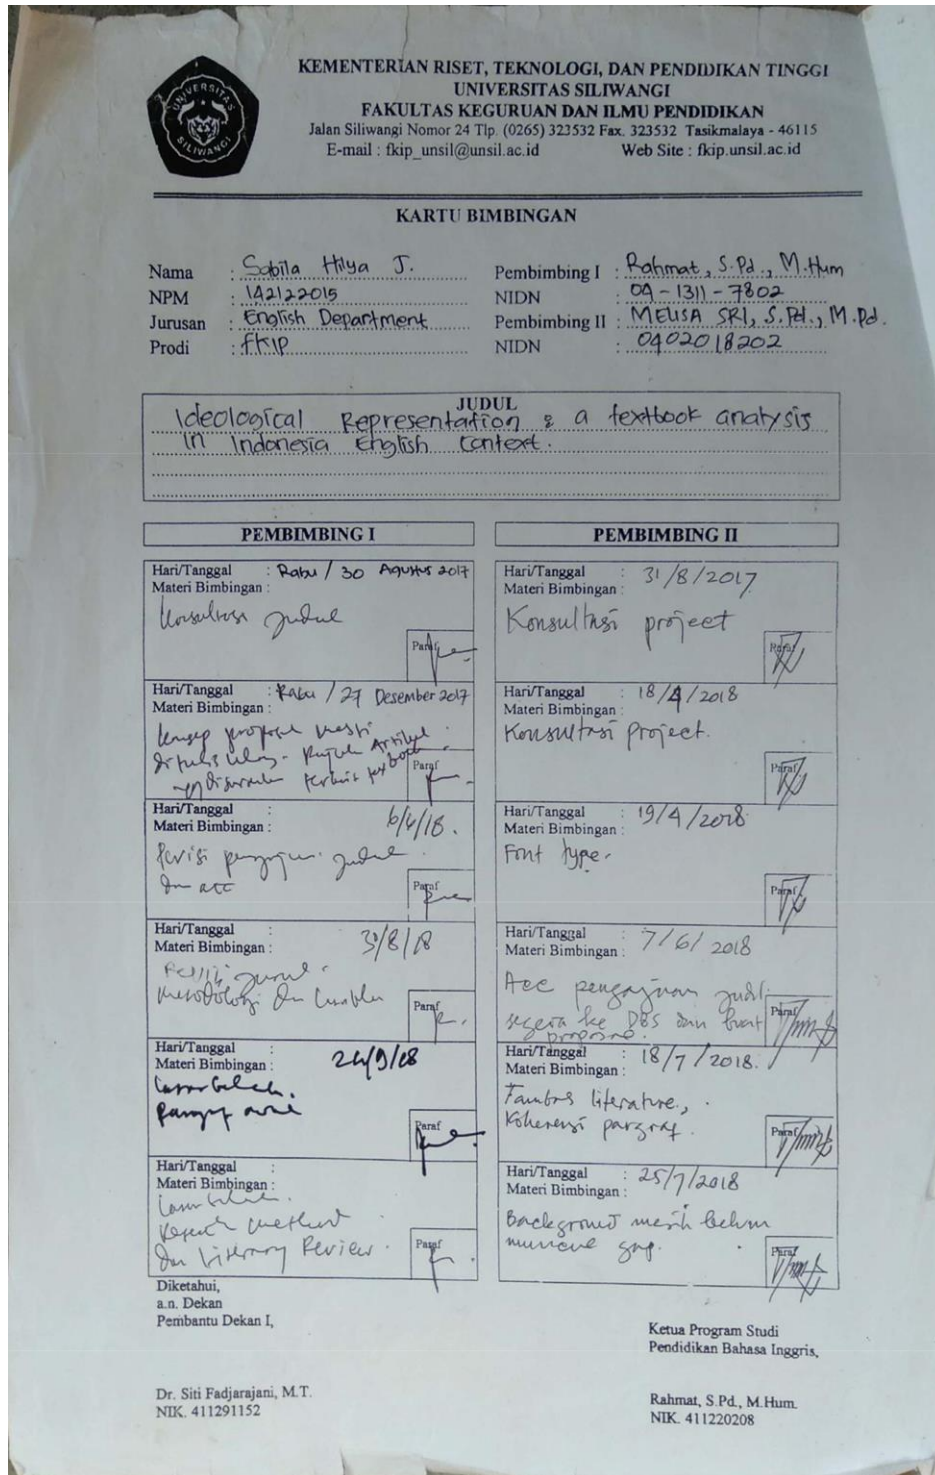 UNIVERSITAS
SILIWANGI
KEMENTERIAN RISET, TEKNOLOGI, DAN PENDIDIKAN TINGGI
UNIVERSITAS SILIWANGI
FAKULTAS KEGURUAN DAN ILMU PENDIDIKAN
Jalan Siliwangi Nomor 24 Tlp. (0265) 323532 Fax. 323532 Tasikmalaya - 46115
E-mail : fkip_unsil@unsil.ac.id Web Site : fkip.unsil.ac.id
KARTU BIMBINGAN
Nama : Sabila Hilya J.
NPM : 142122015
Jurusan : English Department
Prodi : FKIP
Pembimbing I : Rahmat, S.Pd., M.Hum
NIDN : 04-1311-7802
Pembimbing II : MELISA SRI, S.Pd., M.Pd.
NIDN : 0402018202
JUDUL
Ideological Representation : a textbook analysis
in Indonesia English Context.
PEMBIMBING I
Hari/Tanggal : Rabu / 30 Agustus 2017
Materi Bimbingan :
Konsultasi judul
Paraf
Hari/Tanggal : Rabu / 27 Desember 2017
Materi Bimbingan :
konsep proposal mesti
ditulis ulang - Rujuk Artikel
yg disarankan
Paraf
Hari/Tanggal :
Materi Bimbingan : 6/4/18.
Revisi pengajuan judul
dan acc
Paraf
Hari/Tanggal :
Materi Bimbingan : 30/8/18
Metodologi dan
Paraf
Hari/Tanggal :
Materi Bimbingan : 24/9/18
Latar belakang.
Paraf
Hari/Tanggal :
Materi Bimbingan :
Latar belakang.
Research method
dan Literary Review.
Paraf
PEMBIMBING II
Hari/Tanggal : 31/8/2017
Materi Bimbingan :
Konsultasi project
Paraf
Hari/Tanggal : 18/4/2018
Materi Bimbingan :
Konsultasi project.
Paraf
Hari/Tanggal : 19/4/2018
Materi Bimbingan :
Font type.
Paraf
Hari/Tanggal : 7/6/2018
Materi Bimbingan :
Acc pengajuan judul.
segera ke DBS dan buat
proposal.
Paraf
Hari/Tanggal : 18/7/2018.
Materi Bimbingan :
Tambas literature,
Koherensi pargraf.
Paraf
Hari/Tanggal : 25/7/2018
Materi Bimbingan :
Background masih belum
muncul gap.
Paraf
Diketahui,
a.n. Dekan
Pembantu Dekan I,
Dr. Siti Fadjarajani, M.T.
NIK. 411291152
Ketua Program Studi
Pendidikan Bahasa Inggris,
Rahmat, S.Pd., M.Hum.
NIK. 411220208